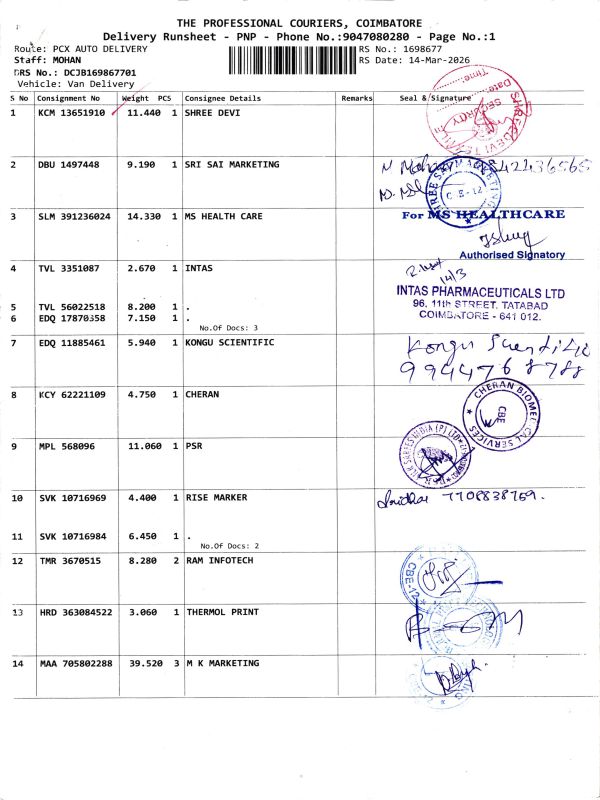 THE PROFESSIONAL COURIERS, COIMBATORE
Delivery Runsheet - PNP - Phone No.:9047080280 - Page No.:1
Route: PCX AUTO DELIVERY RS No.: 1698677
Staff: MOHAN RS Date: 14-Mar-2026
DRS No.: DCJB169867701
Vehicle: Van Delivery
S No Consignment No Weight PCS Consignee Details Remarks Seal & Signature
1 KCM 13651910 11.440 1 SHREE DEVI
SHREE DEVI
SECURITY
Date:
Time:
2 DBU 1497448 9.190 1 SRI SAI MARKETING
SHREE SAI MARKETING
CBE-12
3 SLM 391236024 14.330 1 MS HEALTH CARE
For MS HEALTHCARE
Authorised Signatory
4 TVL 3351087 2.670 1 INTAS
14/3
INTAS PHARMACEUTICALS LTD
96, 11th STREET, TATABAD
COIMBATORE - 641 012.
5 TVL 56022518 8.200 1 .
6 EDQ 17870358 7.150 1 .
No.Of Docs: 3
7 EDQ 11885461 5.940 1 KONGU SCIENTIFIC
Kongu Scientific
9944768788
8 KCY 62221109 4.750 1 CHERAN
CHERAN BIOMEDICAL SERVICES
CBE
9 MPL 568096 11.060 1 PSR
10 SVK 10716969 4.400 1 RISE MARKER
7708838769.
11 SVK 10716984 6.450 1 .
No.Of Docs: 2
12 TMR 3670515 8.280 2 RAM INFOTECH
CBE-12
13 HRD 363084522 3.060 1 THERMOL PRINT
14 MAA 705802288 39.520 3 M K MARKETING